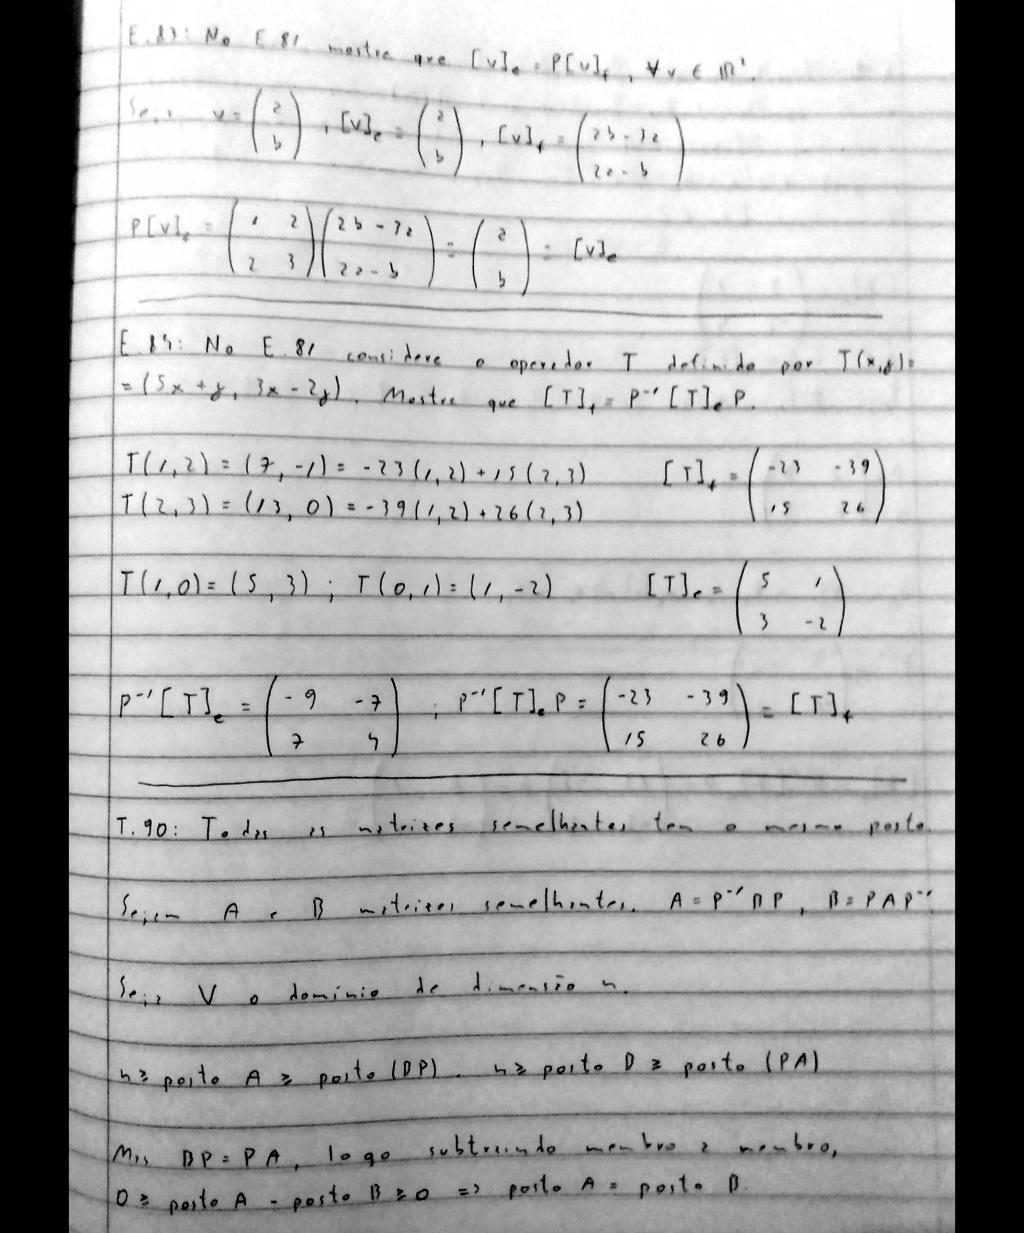 E.83: No E 81 mostre que [v]e = P[v]f, ∀v ∈ ℝ².
Seja v = (a b), [v]e = (a b), [v]f = (2b - 3a 2a - b)
P[v]f = (1 2 2 3)(2b - 3a 2a - b) = (a b) = [v]e
E 84: No E 81 considere o operador T definido por T(x,y) =
= (5x + y, 3x - 2y). Mostre que [T]f = P⁻¹[T]e P.
T(1,2) = (7, -1) = -23(1,2) + 15(2,3) [T]f = (-23 -39
T(2,3) = (13, 0) = -39(1,2) + 26(2,3) 15 26)
T(1,0) = (5, 3); T(0,1) = (1, -2) [T]e = (5 1
3 -2)
P⁻¹[T]e = (-9 -7 ; P⁻¹[T]e P = (-23 -39 = [T]f
7 4) 15 26)
T.90: Todas as matrizes semelhantes tem o mesmo posto.
Sejam A e B matrizes semelhantes. A = P⁻¹BP, B = PAP⁻¹
Seja V o domínio de dimensão n.
n ≥ posto A ≥ posto (BP). n ≥ posto B ≥ posto (PA)
Mas BP = PA, logo subtraindo membro a membro,
0 ≥ posto A - posto B ≥ 0 => posto A = posto B.